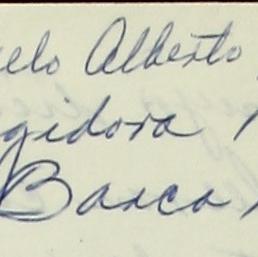 elo Alberto
gidora
Barca